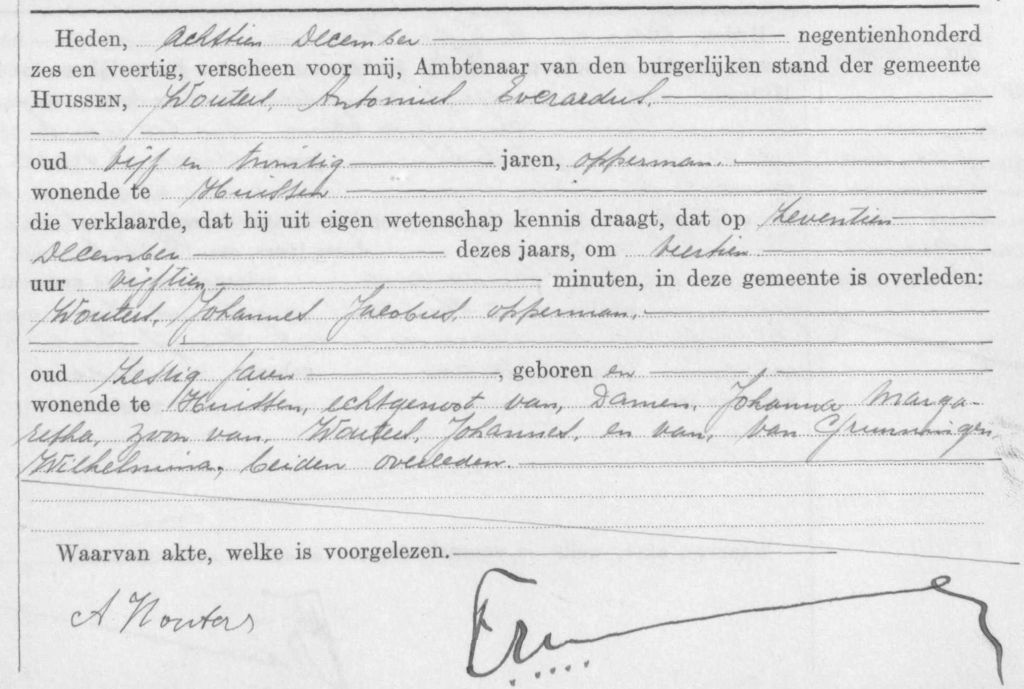 Heden, achttien December negentienhonderd
zes en veertig, verscheen voor mij, Ambtenaar van den burgerlijken stand der gemeente
HUISSEN, Wouters, Antonius Everardus.
oud vijf en twintig jaren, opperman.
wonende te Huissen
die verklaarde, dat hij uit eigen wetenschap kennis draagt, dat op zeventien
December dezes jaars, om veertien
uur vijftien minuten, in deze gemeente is overleden:
Wouters, Johannes Jacobus, opperman.
oud zestig jaren, geboren en
wonende te Huissen, echtgenoot van, Damen, Johanna Marga-
retha, zoon van, Wouters, Johannes, en van, van Grunningen,
Wilhelmina, beiden overleden.
Waarvan akte, welke is voorgelezen.
A. Wouters